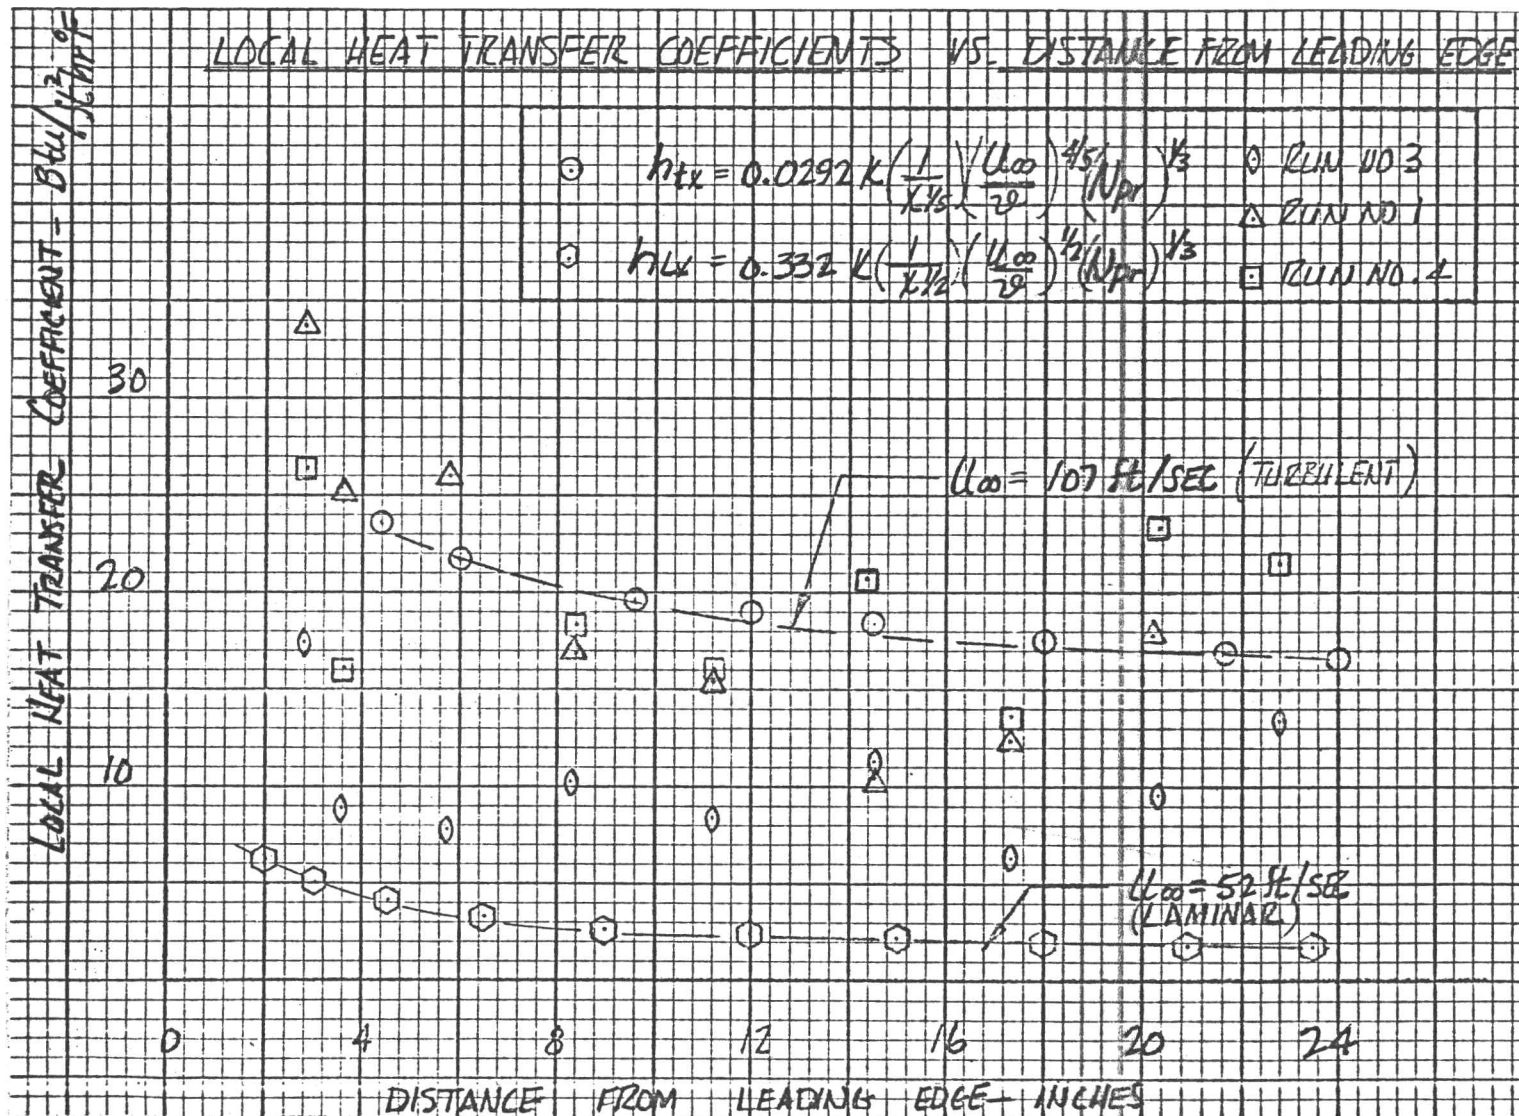 LOCAL HEAT TRANSFER COEFFICIENTS VS. DISTANCE FROM LEADING EDGE
LOCAL HEAT TRANSFER COEFFICIENT - Btu/ft² HR °F
h_tx = 0.0292 K (1/X^1/5)(U∞/ν)^4/5 (Npr)^1/3
h_Lx = 0.332 K (1/X^1/2)(U∞/ν)^1/2 (Npr)^1/3
RUN NO 3
RUN NO 1
RUN NO. 4
30
20
10
U∞ = 107 ft/SEC (TURBULENT)
U∞ = 52 ft/SEC
(LAMINAR)
0 4 8 12 16 20 24
DISTANCE FROM LEADING EDGE - INCHES